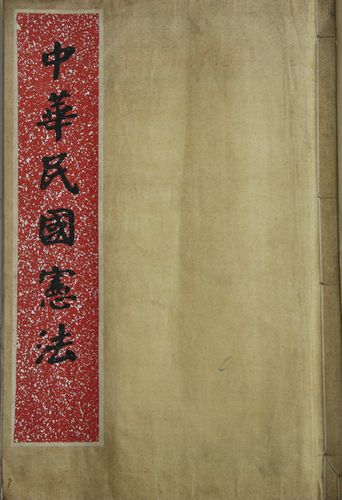 中華民國憲法